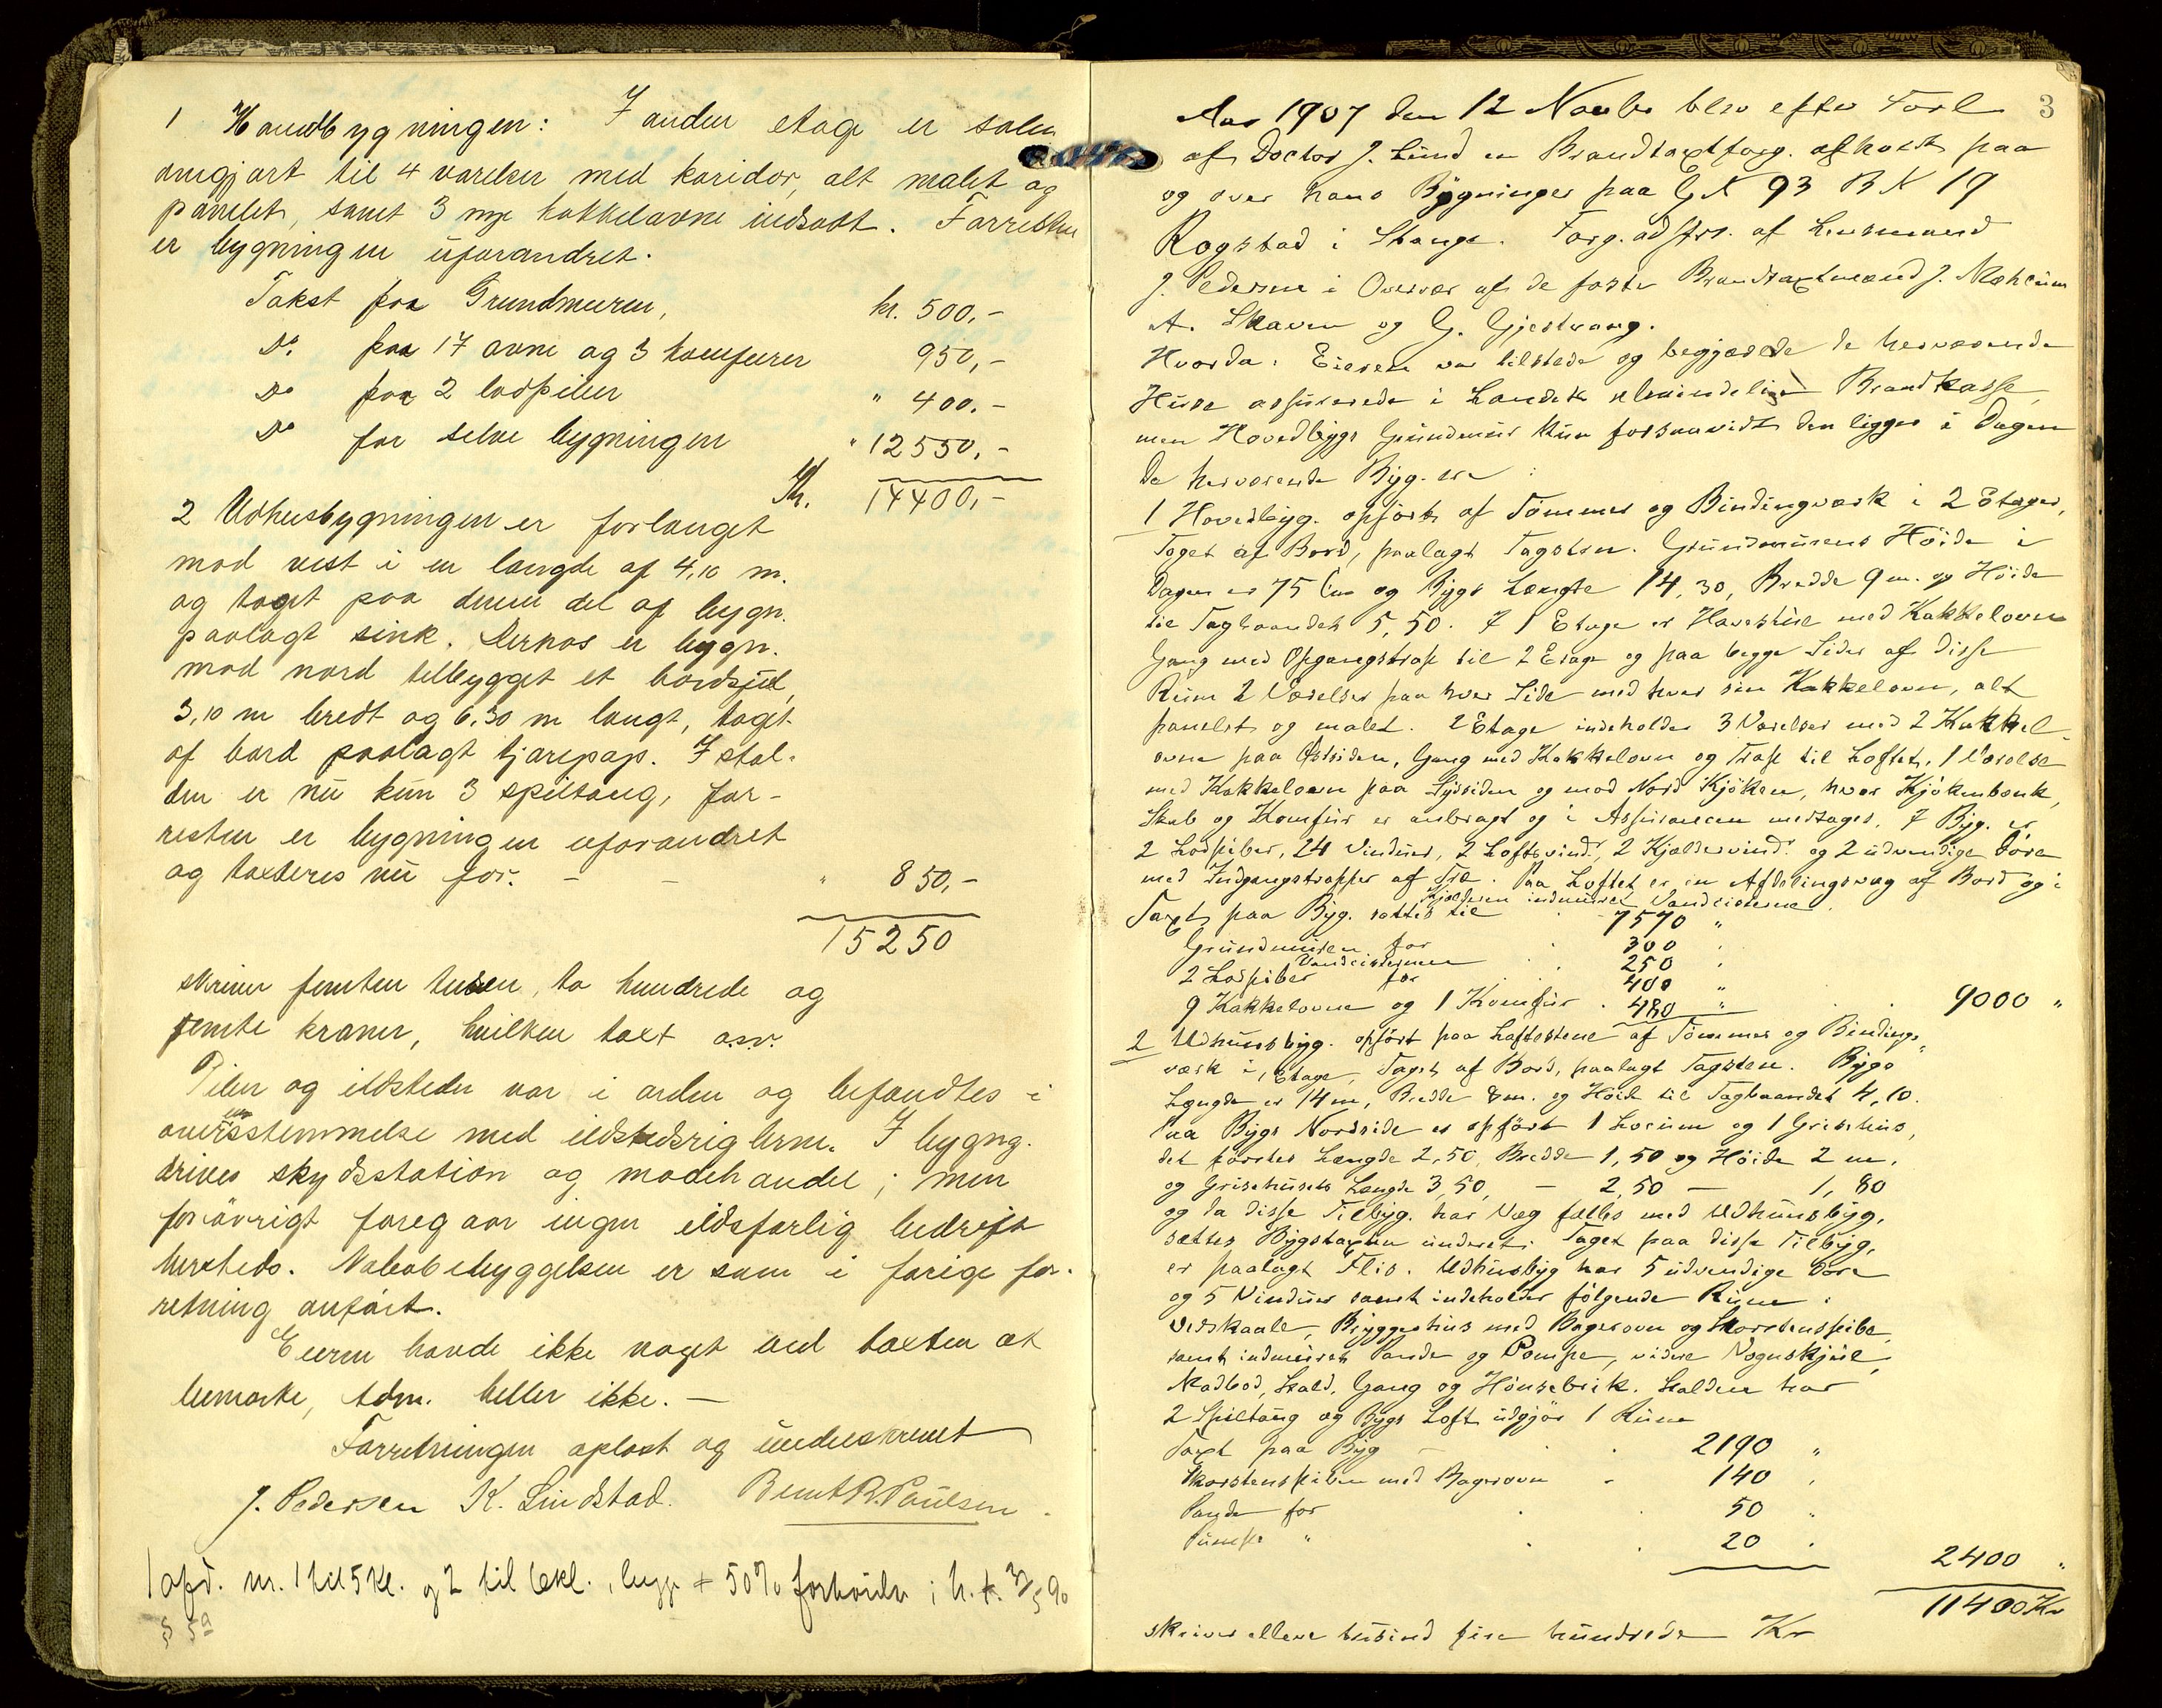 1 Hovedbygningen: I anden etage er salen
omgjort til 4 værelser med koridor, alt malet og
panelet, samt 3 nye kakkelovne indsadt. Forresten
er bygningen uforandret.
Takst paa Grundmuren, kr. 500,-
Do. paa 17 ovne og 3 komfurer 950,-
Do paa 2 lodpiber " 400.-
Do for selve bygningen " 12550,-
Kr. 14400,-
2 Udhusbygningen er forlænget
mod vest i en længde af 4,10 m.
og taget paa denne del af bygn.
paalagt sink. Dernæs er bygn.
mod nord tilbygget et bordskjul,
3,10 m bredt og 6,30 m langt, taget
af bord paalagt tjærepap. I stal-
den er nu kun 3 spiltaug, for-
resten er bygningen uforandret
og taxteres nu for. - - " 850,-
15250
skriver femten tusen, to hundrede og
femti kroner, hvilken taxt o.s.v.
Piber og ildsteder var i orden og befandtes i
overensstemmelse med ildstedsreglerne. I bygng.
drives skydsstation og modehandel; men
forøvrigt foregaar ingen ildsfarlig bedrift
hersteds. Nabobebyggelsen er som i forige for-
retning anført.
Eieren havde ikke noget ved taxten at
bemærke, Adm. heller ikke. -
Forretningen oplæst og underskrevet
J. Pedersen K. Lindstad. Bernt R. Paulsen.
1 opf. nr. 1 til 5 kl. og 2 til 6 kl., begge + 50% forhøielse i h. t.
§ 5a
3
Aar 1907 den 12 Novbr blev efter Forl
af Doctor J. Lund en Brandtaxtforg. afholdt paa
og over hans Bygninger paa G N 93 B N 19
Rogstad i Stange. Forg. adfrs. af Lensmand
J. Pedersen i Overvær af de faste Brandtaxtmænd J. Mæhlum
A. Skaven og G. Gjestvang.
Hvorda: Eieren var tilstede og begjærede de herværende
Huse assurerede i Landets almindelige Brandkasse,
men Hovedbyggs Grundmur kun forsaavidt den ligger i Dagen
De herværende Byg. ere:
1 Hovedbyg. opført af Tømmer og Bindingværk i 2 Etager,
Taget af Bord, paalagt Tagsten. Grundmurens Høide i
Dagen er 75 Cm og Bygs Længde 14,30, Bredde 9 m. og Høide
til Tagbaandet 5,50. I 1 Etage er Havestue med Kakkelovn
Gang med Opgangstrap til 2 Etage og paa begge Sider af disse
Rum 2 Værelser paa hver Side med hver sin Kakkelovn, alt
panelet og malet. 2 Etage indeholder 3 Værelser med 2 Kakkel-
ovne paa Østsiden, Gang med Kakkelovn og Trap til Loftet, 1 Værelse
med Kakkelovn paa Sydsiden og mod Nord Kjøken, hvor Kjøkenbænk,
Skab og Komfur er anbragt og i Assurancen medtages. I Byg. er
2 Lodpiber, 24 Vinduer, 2 Loftsvind., 2 Kjeldervind. og 2 udvendige Døre
med Indgangstrapper af Træ. Paa Loftet er en Afdelingsvæg af Bord og i
Kjelderen indmuret Vandcisterne.
Taxt paa Byg. sættes til 7570 "
Grundmuren for 300 "
Vandcisternen 250 "
2 Lodpiber for 400 "
9 Kakkelovne og 1 Komfur . 480 " 9000 "
2 Udhunsbyg. opført paa Loftstene af Tømmer og Bindings-
værk i 1 Etage, Taget af Bord, paalagt Tagsten. Bygs
Længde er 14 m, Bredde 8 m. og Høide til Tagbaandet 4,10.
Paa Bygs Nordside er opført 1 Locum og 1 Grisehus,
det førstes Længde 2,50, Bredde 1,50 og Høide 2 m.
og Grisehusets Længde 3,50, - 2,50 - 1,80
og da disse Tilbyg. har Væg fælles med Udhunsbyg.
sættes Bygstaxten underet. Taget paa disse Tilbyg.
er paalagt Flis. Udhusbyg har 5 udvendige Døre
og 5 Vinduer samt indeholder følgende Rum:
Vedskaale, Bryggerhus med Bagerovn og Skorstenspibe,
samt indmuret Pande og Pompe, videre Vognskjul,
Madbod, Stald, Gang og Hønsebrik. Stalden har
2 Spiltaug og Bygs Loft udgjør 1 Rum
Taxt paa Byg - 2190 "
Skorstenspiben med Bagerovn - 140 "
Pande for 50 "
Pumpe " 20 " 2400 "
11400 Kr
skriver elleve tusind fire hundrede Kr